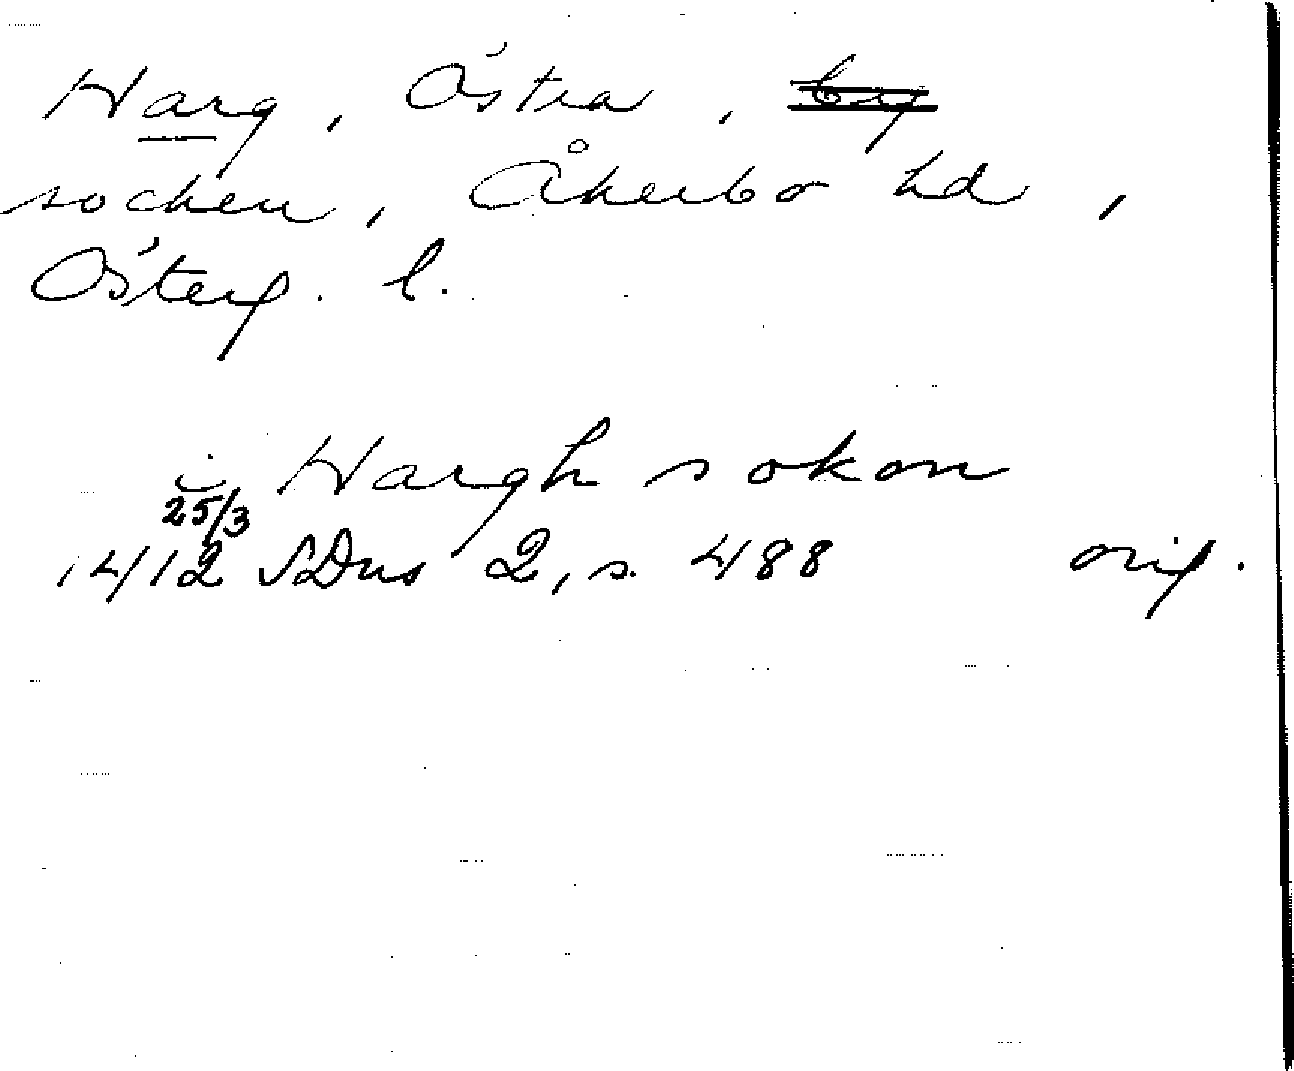 Harg, Östra, by
socken, Åkerbo hd,
Österg. l.
i Hargh sokon
25/3
1412 SDns 2, s. 488 orig.